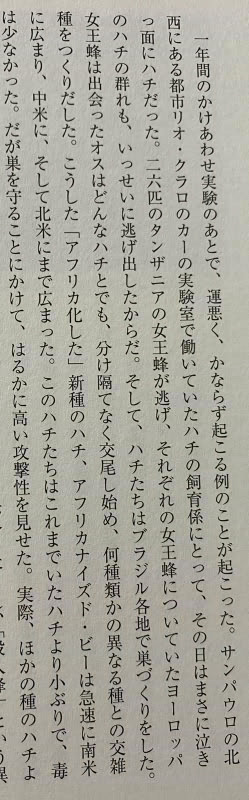 一年間のかけあわせ実験のあとで、運悪く、かならず起こる例のことが起こった。サンパウロの北
西にある都市リオ・クラロのカーの実験室で働いていたハチの飼育係にとって、その日はまさに泣き
っ面にハチだった。二六匹のタンザニアの女王蜂が逃げ、それぞれの女王蜂についていたヨーロッパ
のハチの群れも、いっせいに逃げ出したからだ。そして、ハチたちはブラジル各地で巣づくりをした。
女王蜂は出会ったオスはどんなハチとでも、分け隔てなく交尾し始め、何種類かの異なる種との交雑
種をつくりだした。こうした「アフリカ化した」新種のハチ、アフリカナイズド・ビーは急速に南米
に広まり、中米に、そして北米にまで広まった。このハチたちはこれまでいたハチより小ぶりで、毒
は少なかった。だが巣を守ることにかけて、はるかに高い攻撃性を見せた。実際、ほかの種のハチよ